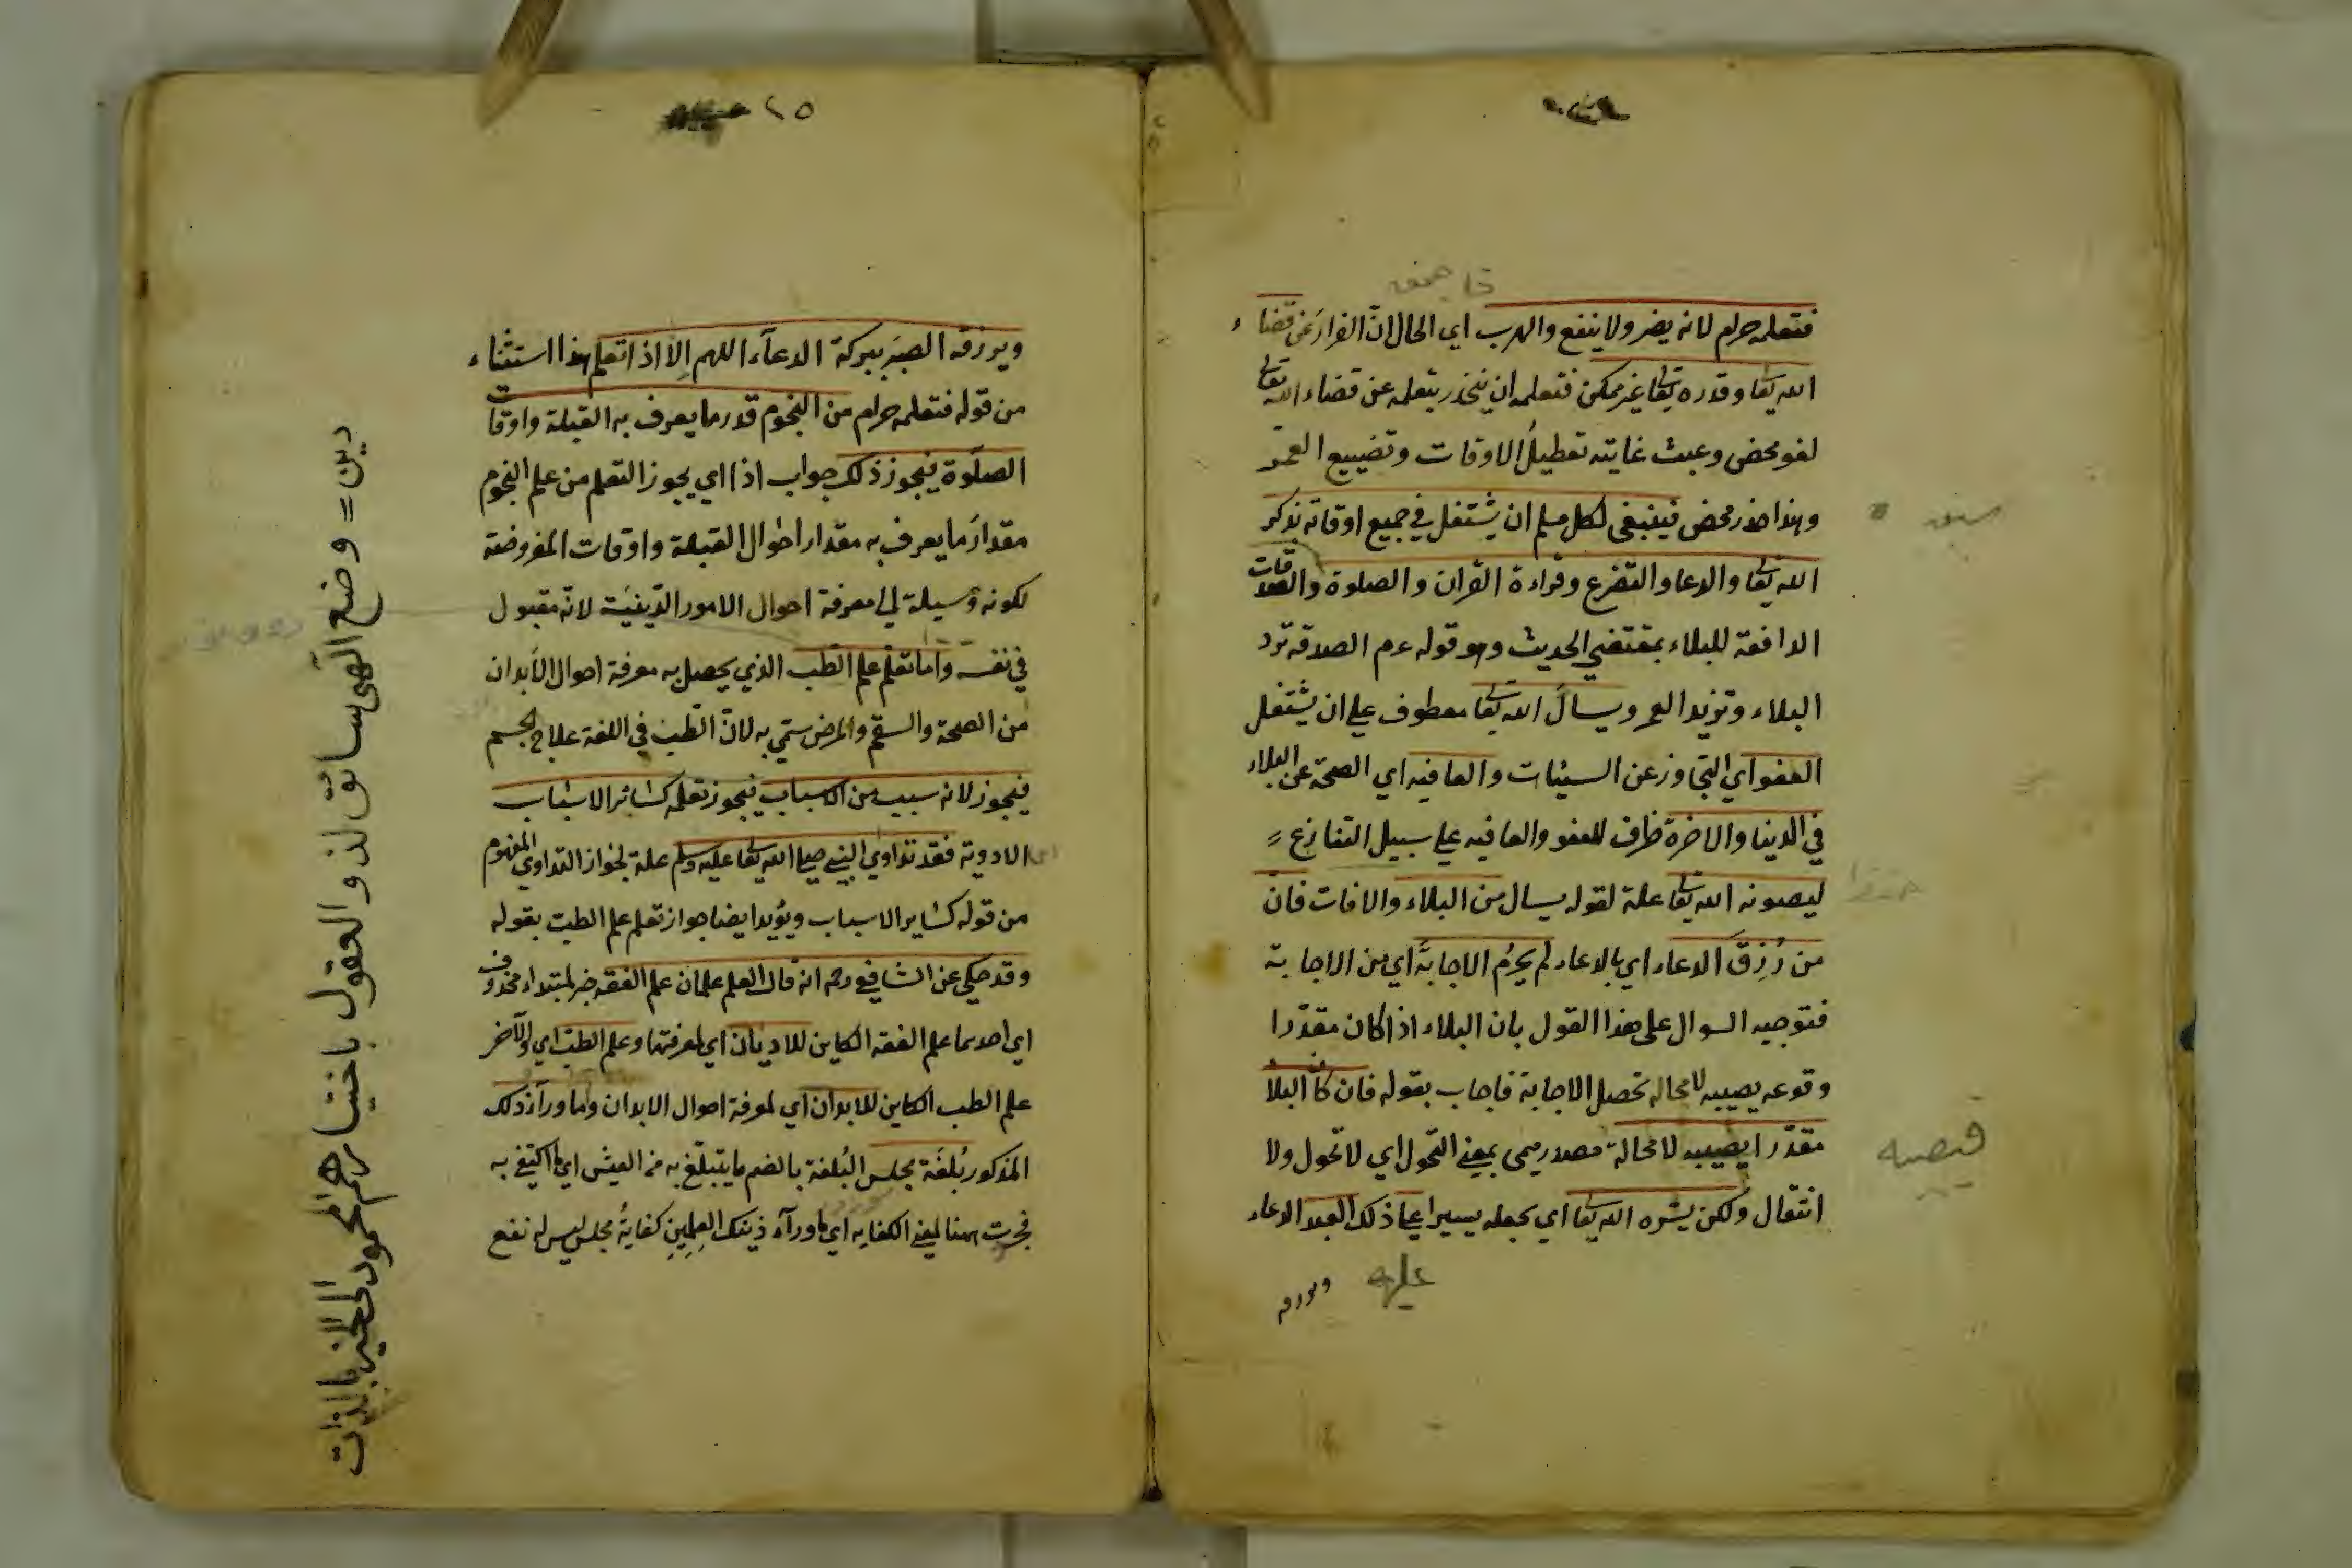 فتعلمه حرام لانه يضر ولا ينفع والهرب اي الحال ان الفرار عن قضاء
الله تعالى وقدره تعالى غير ممكن فتعلمه ان يتحذر بتعلمه عن قضاء الله تعالى
لغو محض وعبث غايته تعطيل الاوقات وتضييع العمر
وهذا ضرر محض فينبغي لكل مسلم ان يشتغل في جميع اوقاته بذكر
الله تعالى والدعا والتضرع وقراءة القران والصلوة والصدقات
الدافعة للبلاء بمقتضي الحديث وهو قوله عم الصدقة ترد
البلاء وتزيد العمر ويسأل الله تعالى معطوف علي ان يشتغل
العفو اي التجاوز عن السيئات والعافيه اي الصحة عن البلاء
في الدينا والاخرة ظرف للعفو والعافيه علي سبيل التنازع
ليصونه الله تعالى علة لقوله يسال من البلاء والافات فان
من رُزِقَ الدعاء اي بالدعاء لم يحرم الاجابة اي من الاجابة
فتوجيه السوال على هذا القول بان البلاء اذا كان مقدرا
وقوعه يصيبه لا محاله تحصل الاجابة فاجاب بقوله فان كان البلا
مقدّرا يصيبه لا محالة مصدر ميمى بمعنى التحول اي لا تحول ولا
انتقال ولكن يسّره الله تعالى اي يجعله يسيرا علي ذلك العبد الدعاء
عليه ويرزقه
٢٥
ويرزقه الصبر ببركة الدعآء اللهم الا اذا تعلم هذا استثناء
من قوله فتعلمه حرام من النجوم قدر ما يعرف به القبلة واوقات
الصلوة فيجوز ذلك جواب اذا اي يجوز التعلم من علم النجوم
مقدار ما يعرف به مقدار احوال القبلة واوقات المفروضة
لكونه وسيلة الي معرفة احوال الامور الدّينيّة لانّه مقبول
في نفسه واما تعلّم علم الطب الذي يحصل به معرفة احوال الأبدان
من الصحة والسقم والمرض سمّي به لانّ الطب في اللغة علاج الجسم
فيجوز لانه سبب من الاسباب فيجوز تعلمه كسائر الاسباب
الادوية فقد تداوي النبي صلي الله تعالى عليه وسلم علة لجواز التداوي المفهوم
من قوله كساير الاسباب ويؤيد ايضا جواز تعلم علم الطب بقوله
وقد حكي عن الشافعي رحمه انه قال العلم علمان علم الفقه خبر لمبتداء محذوف
اي احدهما علم الفقه الكاين للاديان اي لمعرفتها وعلم الطب اي والآخر
علم الطب الكاين للابدان اي لمعرفة احوال الابدان وما ورآء ذلك
المذكور بُلغَة مجلس البُلغة بالضم ما يتبلّغ به من العيش اي ما اكتفي به
فجرت ههنا لمعنى الكفايه اي ما ورآء ذينك العِلمينِ كفايةُ مجلس ليس له نفع
دين = وضع الهى سائق لذو العقول باختيارهم المحمود الى الخير بالذات